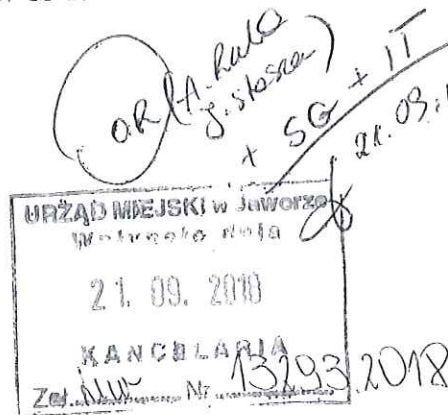 OR (A.
J.
+ SG + IT
21.09.
URZĄD MIEJSKI w Jaworze
Wpłynęło dnia
21. 09. 2018
KANCELARIA
Zał. Nr 13293.2018